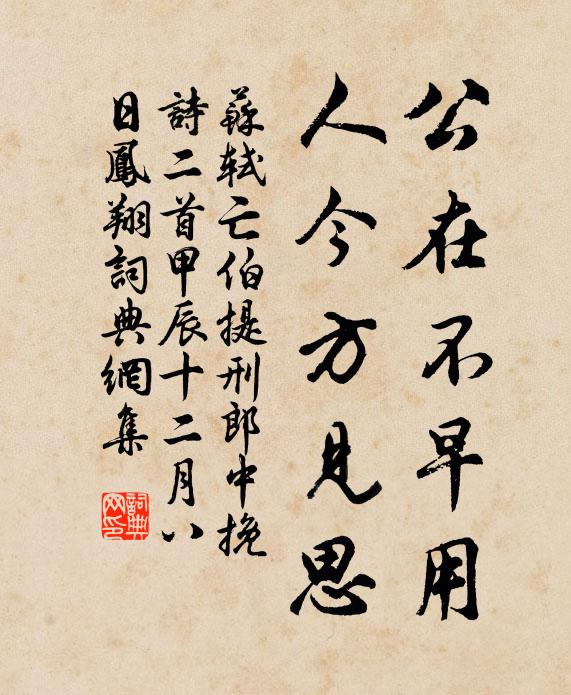 公在不早用
人今方見思
蘇軾亡伯提刑郎中挽
詩二首甲辰十二月八
日鳳翔詞典網集
詞典
网印